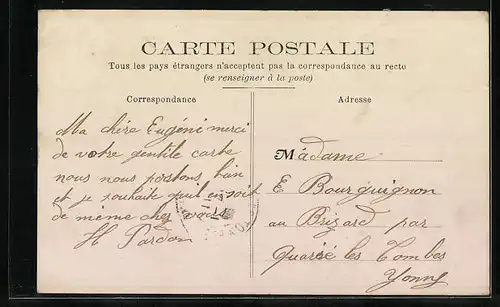 CARTE POSTALE
Tous les pays étrangers n'acceptent pas la correspondance au recto
(se renseigner à la poste)
Correspondance
Adresse
Ma chère Eugéni merci
de votre gentile carte
nous nous portons bien
et je souhaite qu'il en soit
de même chez vous
H Pardon
Madame
E Bourguignon
au Brizard par
Quarré les Tombes
Yonne